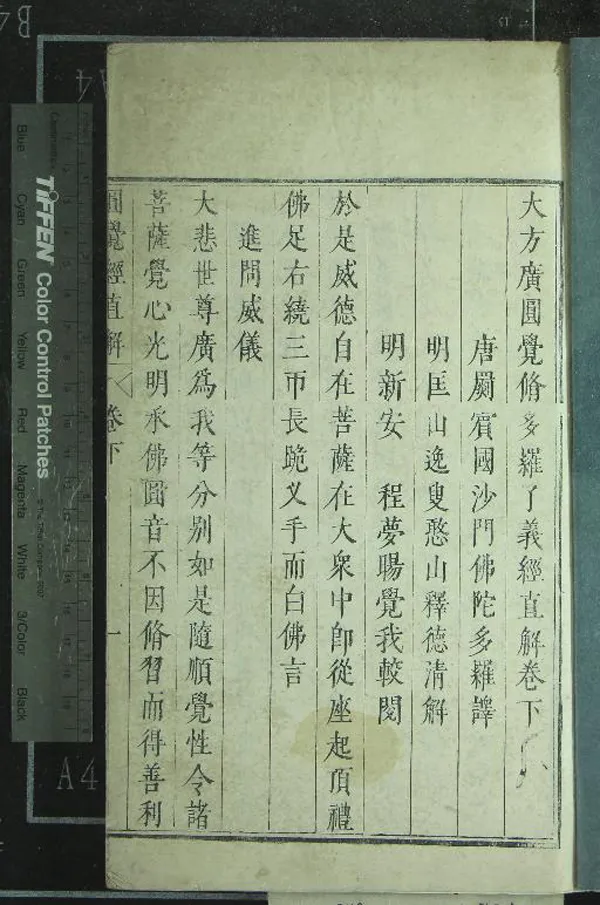 大方廣圓覺脩多羅了義經直解卷下
唐罽賓國沙門佛陀多羅譯
明匡山逸叟憨山釋德清解
明新安 程夢暘覺我較閱
於是威德自在菩薩在大衆中卽從座起頂禮
佛足右繞三帀長跪义手而白佛言
進問威儀
大悲世尊廣爲我等分别如是隨順覺性令諸
菩薩覺心光明承佛圓音不因脩習而得善利
圓覺經直解 卷下 一
TIFFEN Color Control Patches
Blue Cyan Green Yellow Red Magenta White 3/Color Black
A4
B4
A4